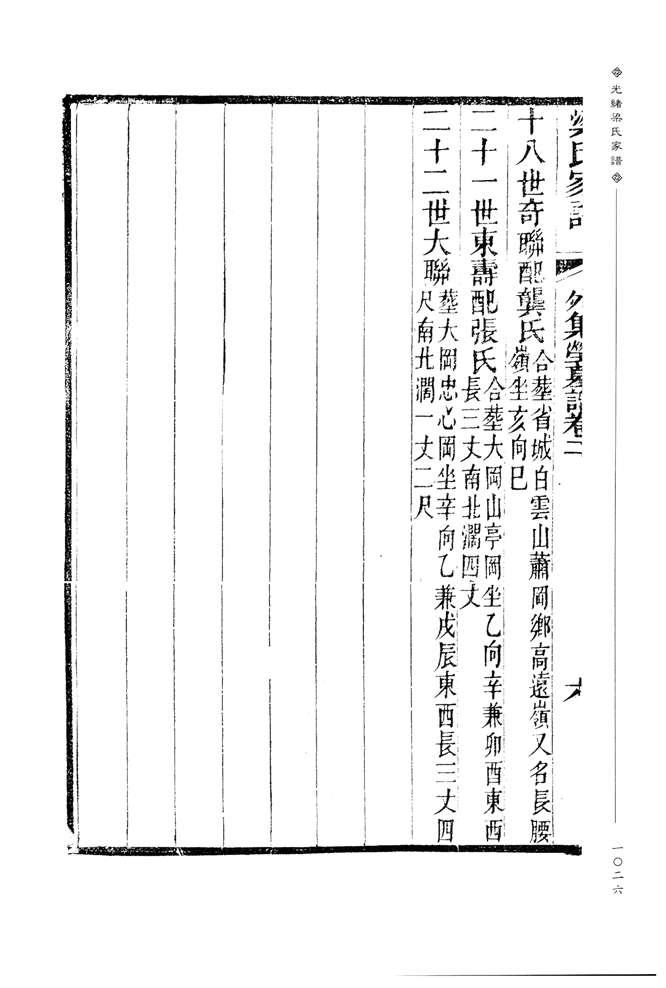 光緒梁氏家譜
一〇二六
梁氏家譜 外集塋墓譜卷二 六
十八世奇聯配龔氏合葬省城白雲山蕭岡鄉高遠嶺又名長腰
嶺坐亥向巳
二十一世東壽配張氏合葬大岡山亭岡坐乙向辛兼卯酉東西
長三丈南北濶四丈
二十二世大聯葬大岡忠心岡坐辛向乙兼戌辰東西長三丈四
尺南北濶一丈二尺